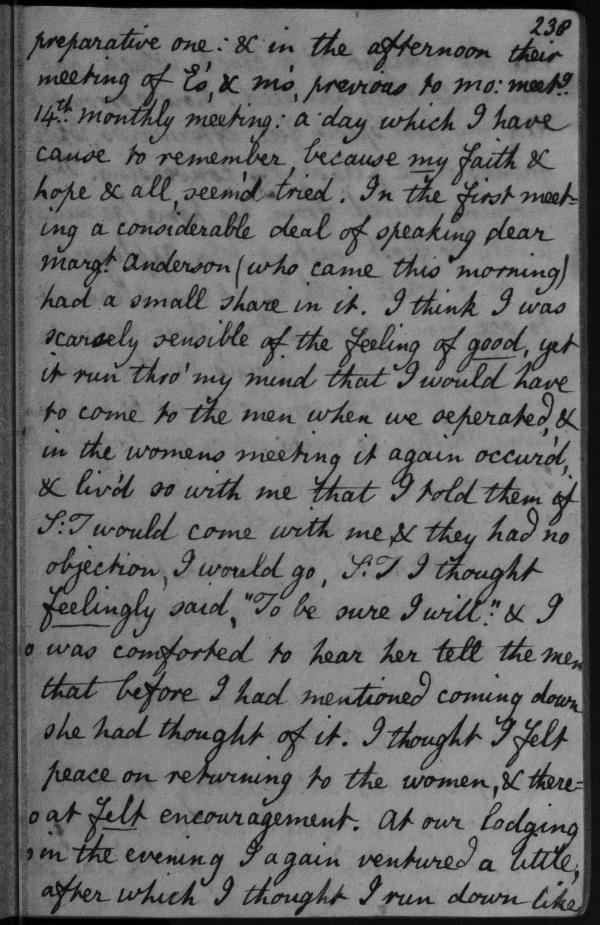 238
preparative one: & in the afternoon their
meeting of E's, & m's, previous to mo: meetg.
14th. monthly meeting: a day which I have
cause to remember because my faith &
hope & all, seem'd tried. In the first meet=
ing a considerable deal of speaking, dear
Margt. Anderson (who came this morning)
had a small share in it. I think I was
scarsely sensible of the feeling of good, yet
it run thro' my mind that I would have
to come to the men when we seperated, &
in the womens meeting it again occur'd,
& liv'd so with me that I told them if
S:T would come with me, & they had no
objection, I would go, S:T I thought
feelingly said, "To be sure I will": & I
was comforted to hear her tell the men
that before I had mentioned coming down
she had thought of it. I thought I felt
peace on returning to the women, & there=
at felt encouragement. At our lodging
in the evening I again ventured a little,
after which I thought I run down like